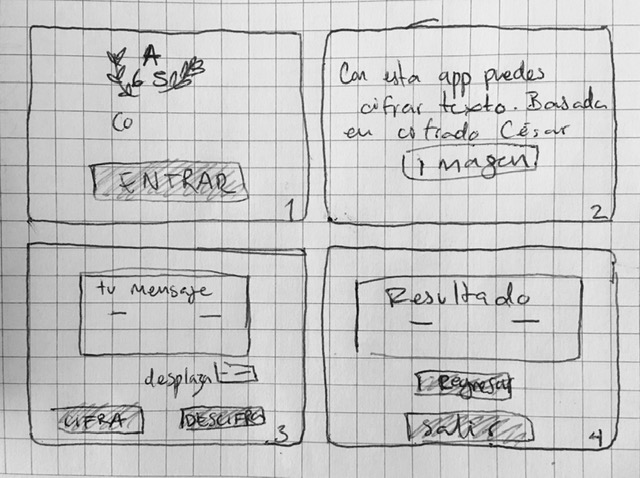 A
6 S
Co
ENTRAR
1
Con esta app puedes
cifrar texto. Basada
en cifrado César
imagen
2
tu mensaje
desplaza
CIFRA
DESCIFRA
3
Resultado
Regresar
Salir
4